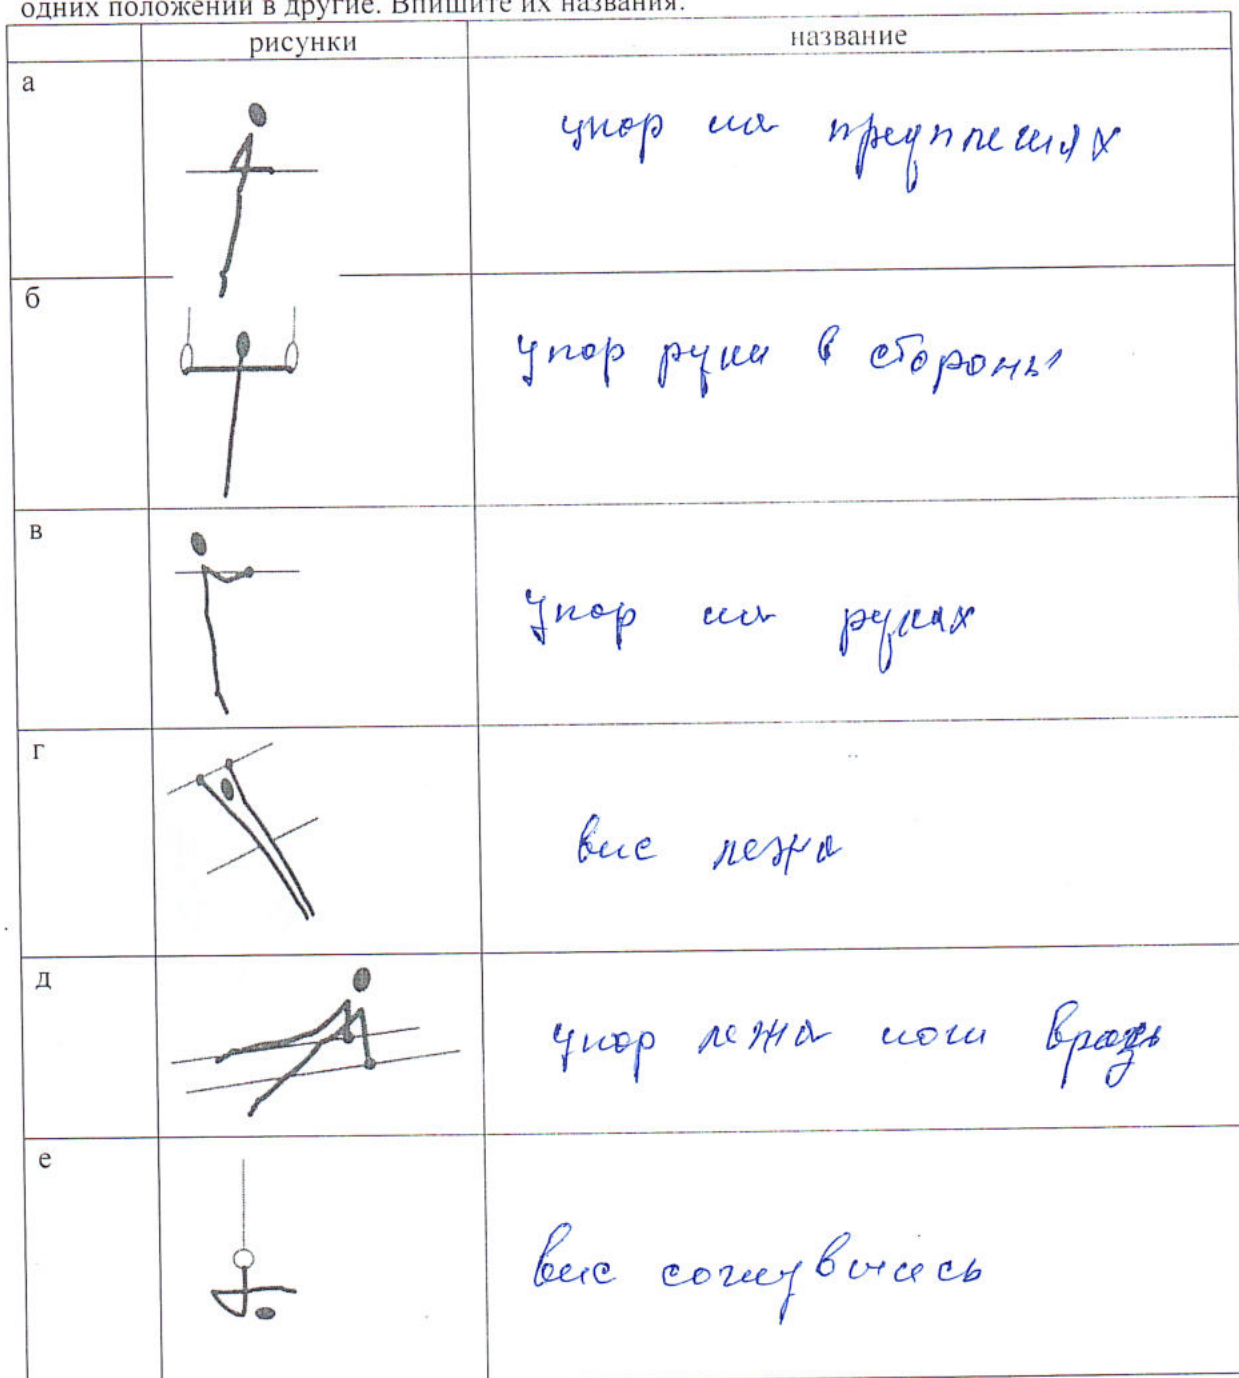 одних положений в другие. Впишите их названия.
рисунки название
а упор на предплечьях
б упор руки в стороны
в упор на руках
г вис лежа
д упор лежа ноги врозь
е вис согнувшись